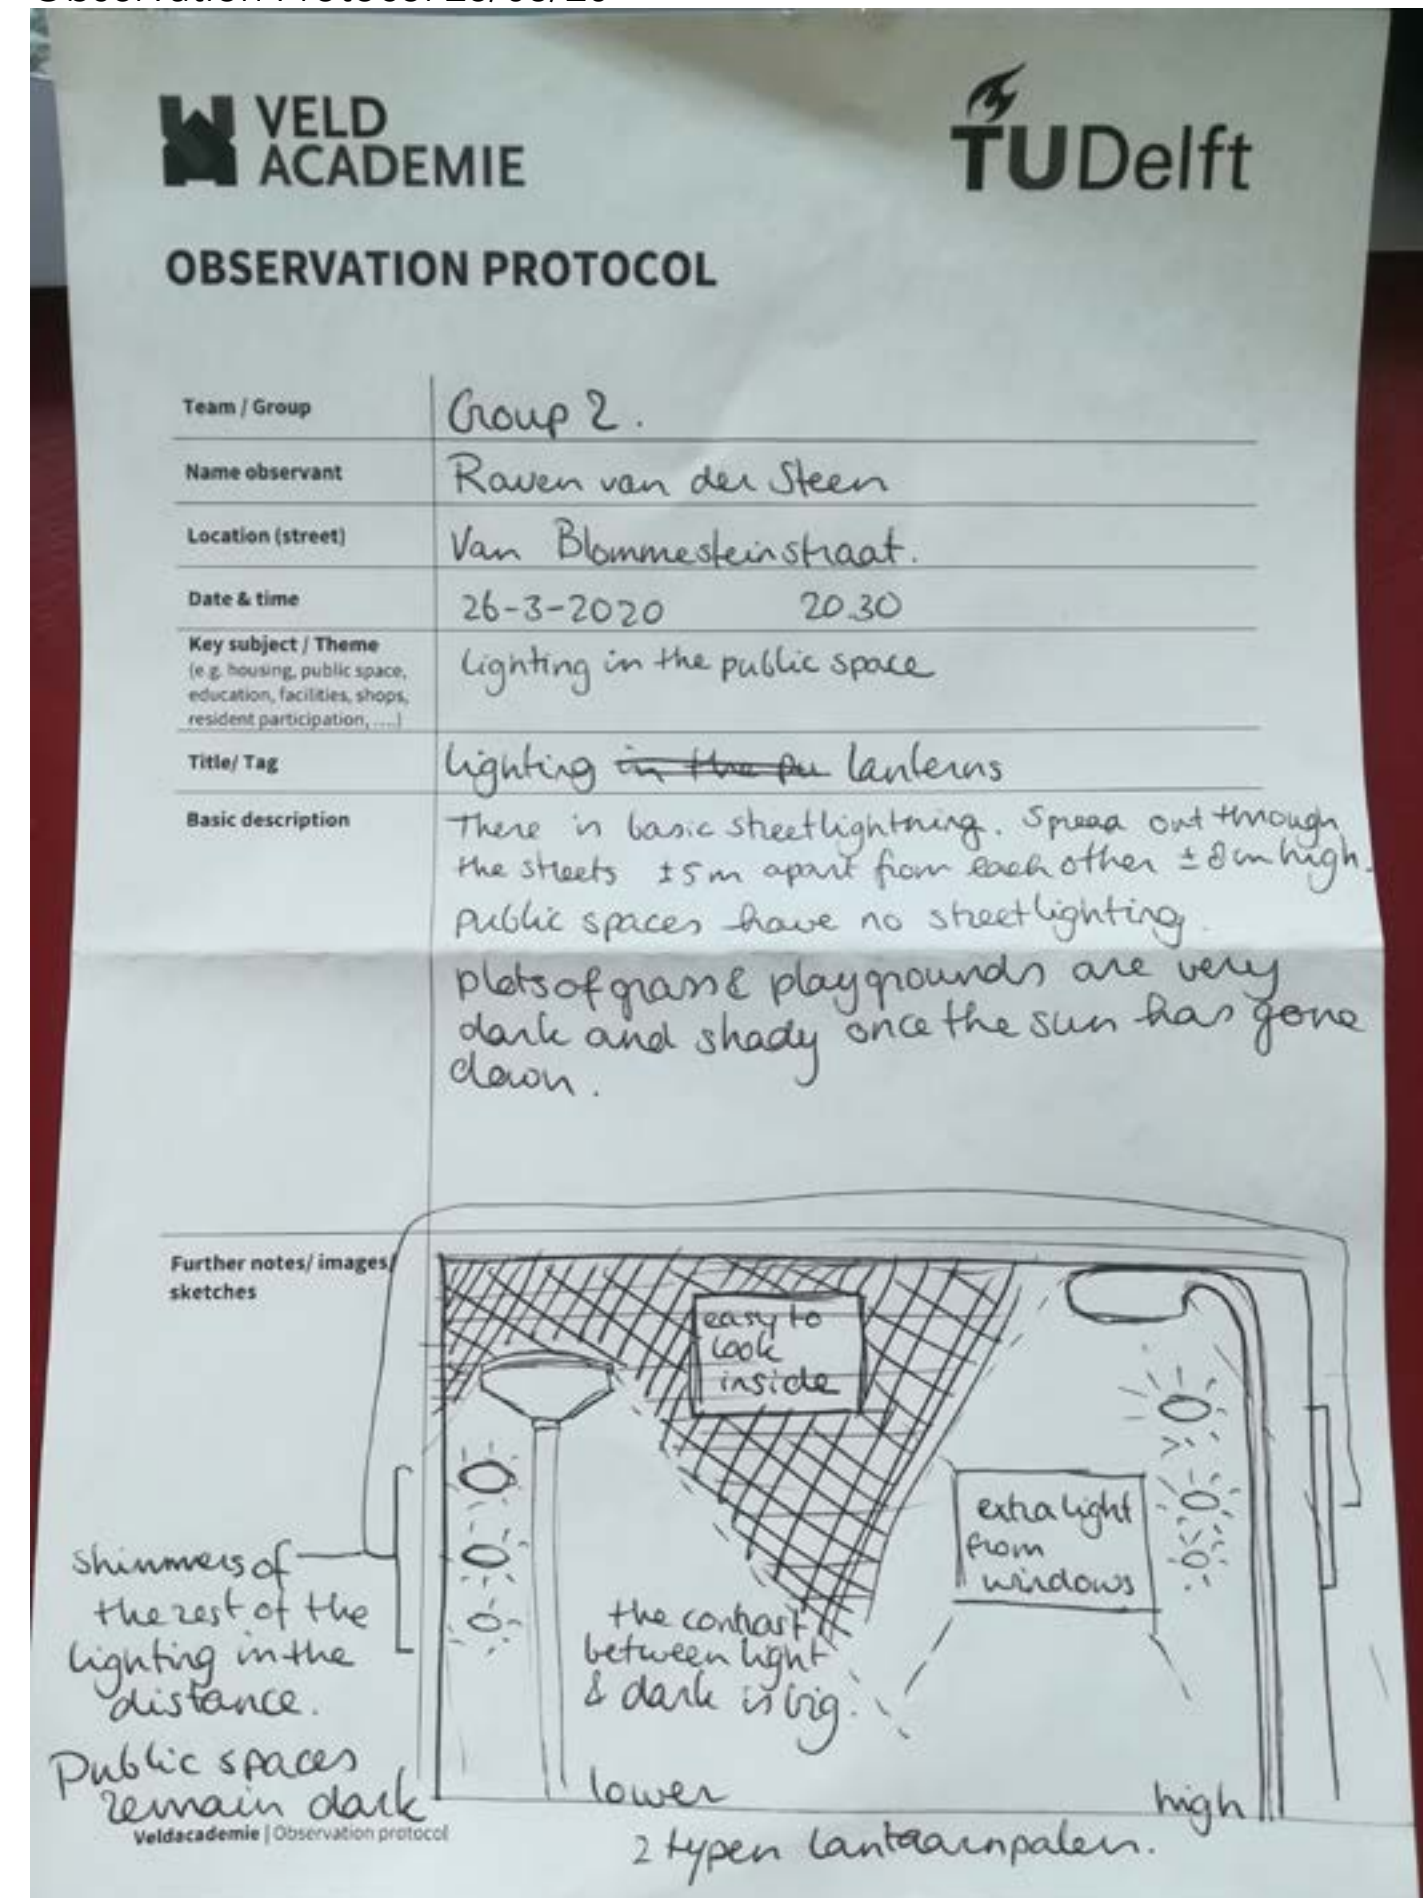 Observation Protocol 26/03/20
VELD
ACADEMIE
TU Delft
OBSERVATION PROTOCOL
Team / Group
Group 2.
Name observant
Raven van der Steen
Location (street)
Van Blommesteinstraat.
Date & time
26-3-2020 20.30
Key subject / Theme
(e.g. housing, public space,
education, facilities, shops,
resident participation, ....)
Lighting in the public space
Title/ Tag
Lighting in the pu lanterns
Basic description
There is basic streetlightning. Spread out through
the streets ±5m apart from each other ± 8m high.
public spaces have no streetlighting.
plots of grass & playgrounds are very
dark and shady once the sun has gone
down.
Further notes/ images/
sketches
easy to
look
inside
extra light
from
windows
shimmers of
the rest of the
lighting in the
distance.
the contrast
between light
& dark is big.
Public spaces
remain dark
lower
high
2 typen lantaarnpalen.
Veldacademie | Observation protocol